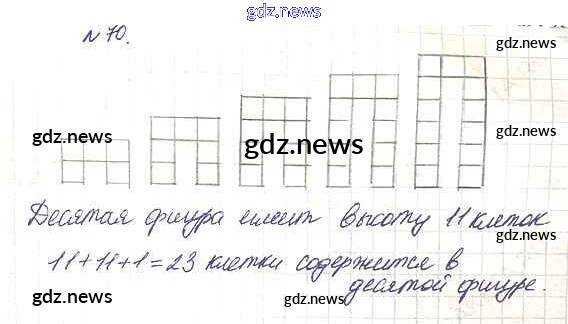 gdz.news
№ 70.
gdz.news
gdz.news
gdz.news
gdz.news
gdz.news
Десятая фигура имеет высоту 11 клеток
gdz.news
11+11+1=23 клетки содержится в
десятой фигуре.
gdz.news
gdz.news
gdz.news